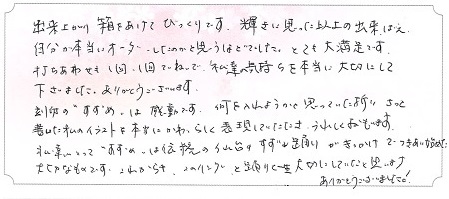 出来上がり 箱をあけて びっくりです。輝きに 思った以上の出来ばえ
自分が本当にオーダーしたのかと思うほどでした。とても大満足です。
打ちあわせも 1回1回ていねいで、私達の気持ちを本当に大切にして
下さいました。ありがとうございます。
刻印の"すずめ"は 感動です。何を入れようかと思っていた時に さっと
書いた私のイラストを本当にかわいらしく表現していただき、うれしく思います。
私達にとって"すずめ"は伝統の仙台の"すずめ踊り"がきっかけでつきあい始めた
大切なものです。これからも このリングと踊りを一生大切にしていきたいと思います
ありがとうございました!